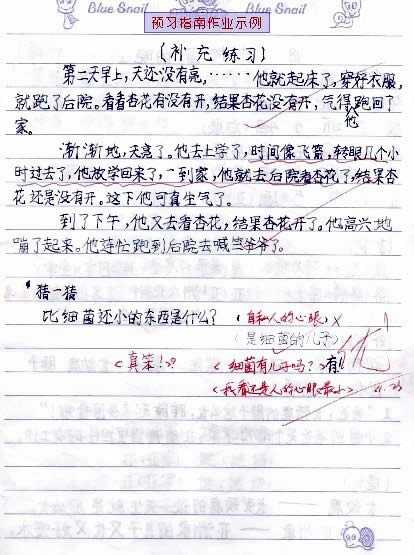 Blue Snail
Blue Snail
预习指南作业示例
(补充练习)
第二天早上，天还没有亮，……他就起床了，穿好衣服，
就跑了后院。看看杏花有没有开，结果杏花没有开，气得跑回了
他
家。
渐渐地，天亮了。他去上学了，时间像飞箭，转眼几个小
时过去了，他放学回来了，一到家，他就去后院看杏花了，结果杏
花还是没有开。这下他可真生气了。
到了下午，他又去看杏花，结果杏花开了。他高兴地
蹦了起来。他连忙跑到后院去喊爷爷了。
猜一猜
比细菌还小的东西是什么？(自私人的心眼)×
(是细菌的儿子)
<真笨！？> <细菌有儿子吗？>有!!
优
<我看还是人的心眼最小>